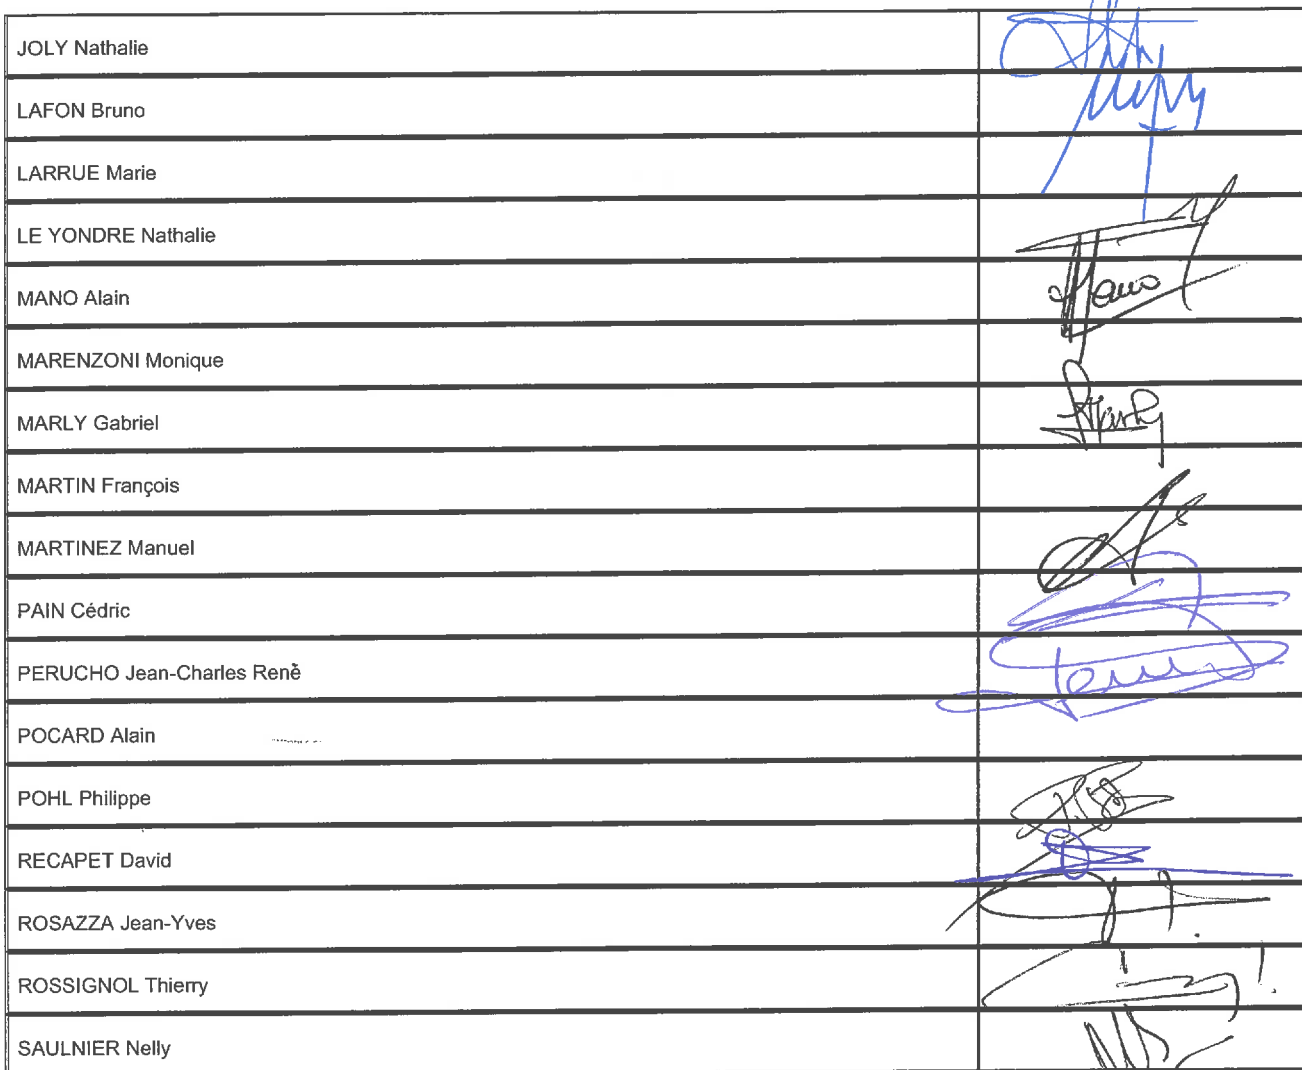 JOLY Nathalie
LAFON Bruno
LARRUE Marie
LE YONDRE Nathalie
MANO Alain
Mano
MARENZONI Monique
MARLY Gabriel
Marly
MARTIN François
MARTINEZ Manuel
PAIN Cédric
PERUCHO Jean-Charles Renè
POCARD Alain
POHL Philippe
RECAPET David
ROSAZZA Jean-Yves
ROSSIGNOL Thierry
SAULNIER Nelly